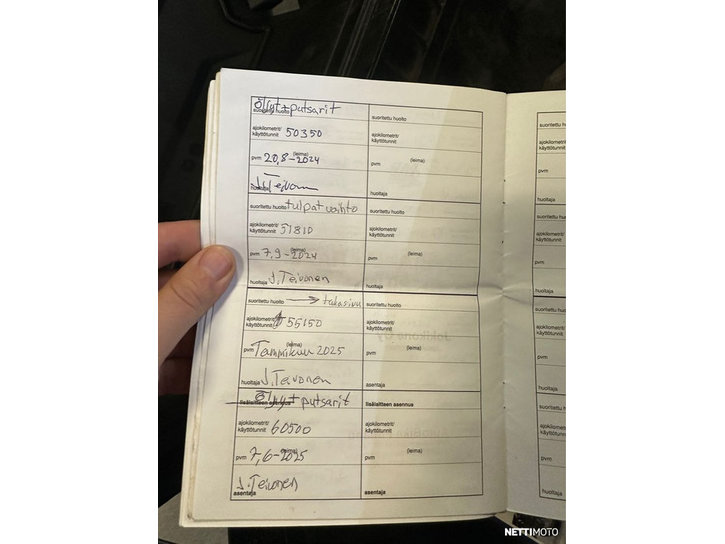 Öljyt+putsarit
suoritettu huolto
suoritettu huolto
suoritettu huolto
ajokilometrit/
käyttötunnit 50350
ajokilometrit/
käyttötunnit
pvm 20,8-2024 (leima)
pvm (leima)
huoltaja J.Teivonen
huoltaja
suoritettu huolto tulpat vaihto
suoritettu huolto
ajokilometrit/
käyttötunnit 51810
ajokilometrit/
käyttötunnit
pvm 7,9-2024 (leima)
pvm (leima)
huoltaja J.Teivonen
huoltaja
suoritettu huolto → takasivu
suoritettu huolto
ajokilometrit/
käyttötunnit 55150
ajokilometrit/
käyttötunnit
pvm Tammikuu 2025 (leima)
pvm (leima)
huoltaja J.Teivonen
asentaja
Öljyt+putsarit
lisälaitteen asennus
lisälaitteen asennus
ajokilometrit/
käyttötunnit 60500
ajokilometrit/
käyttötunnit
pvm 7,6-2025 (leima)
pvm (leima)
J.Teivonen
asentaja
asentaja
pvm
huoltaja
pvm
huoltaja
pvm
NETTIMOTO